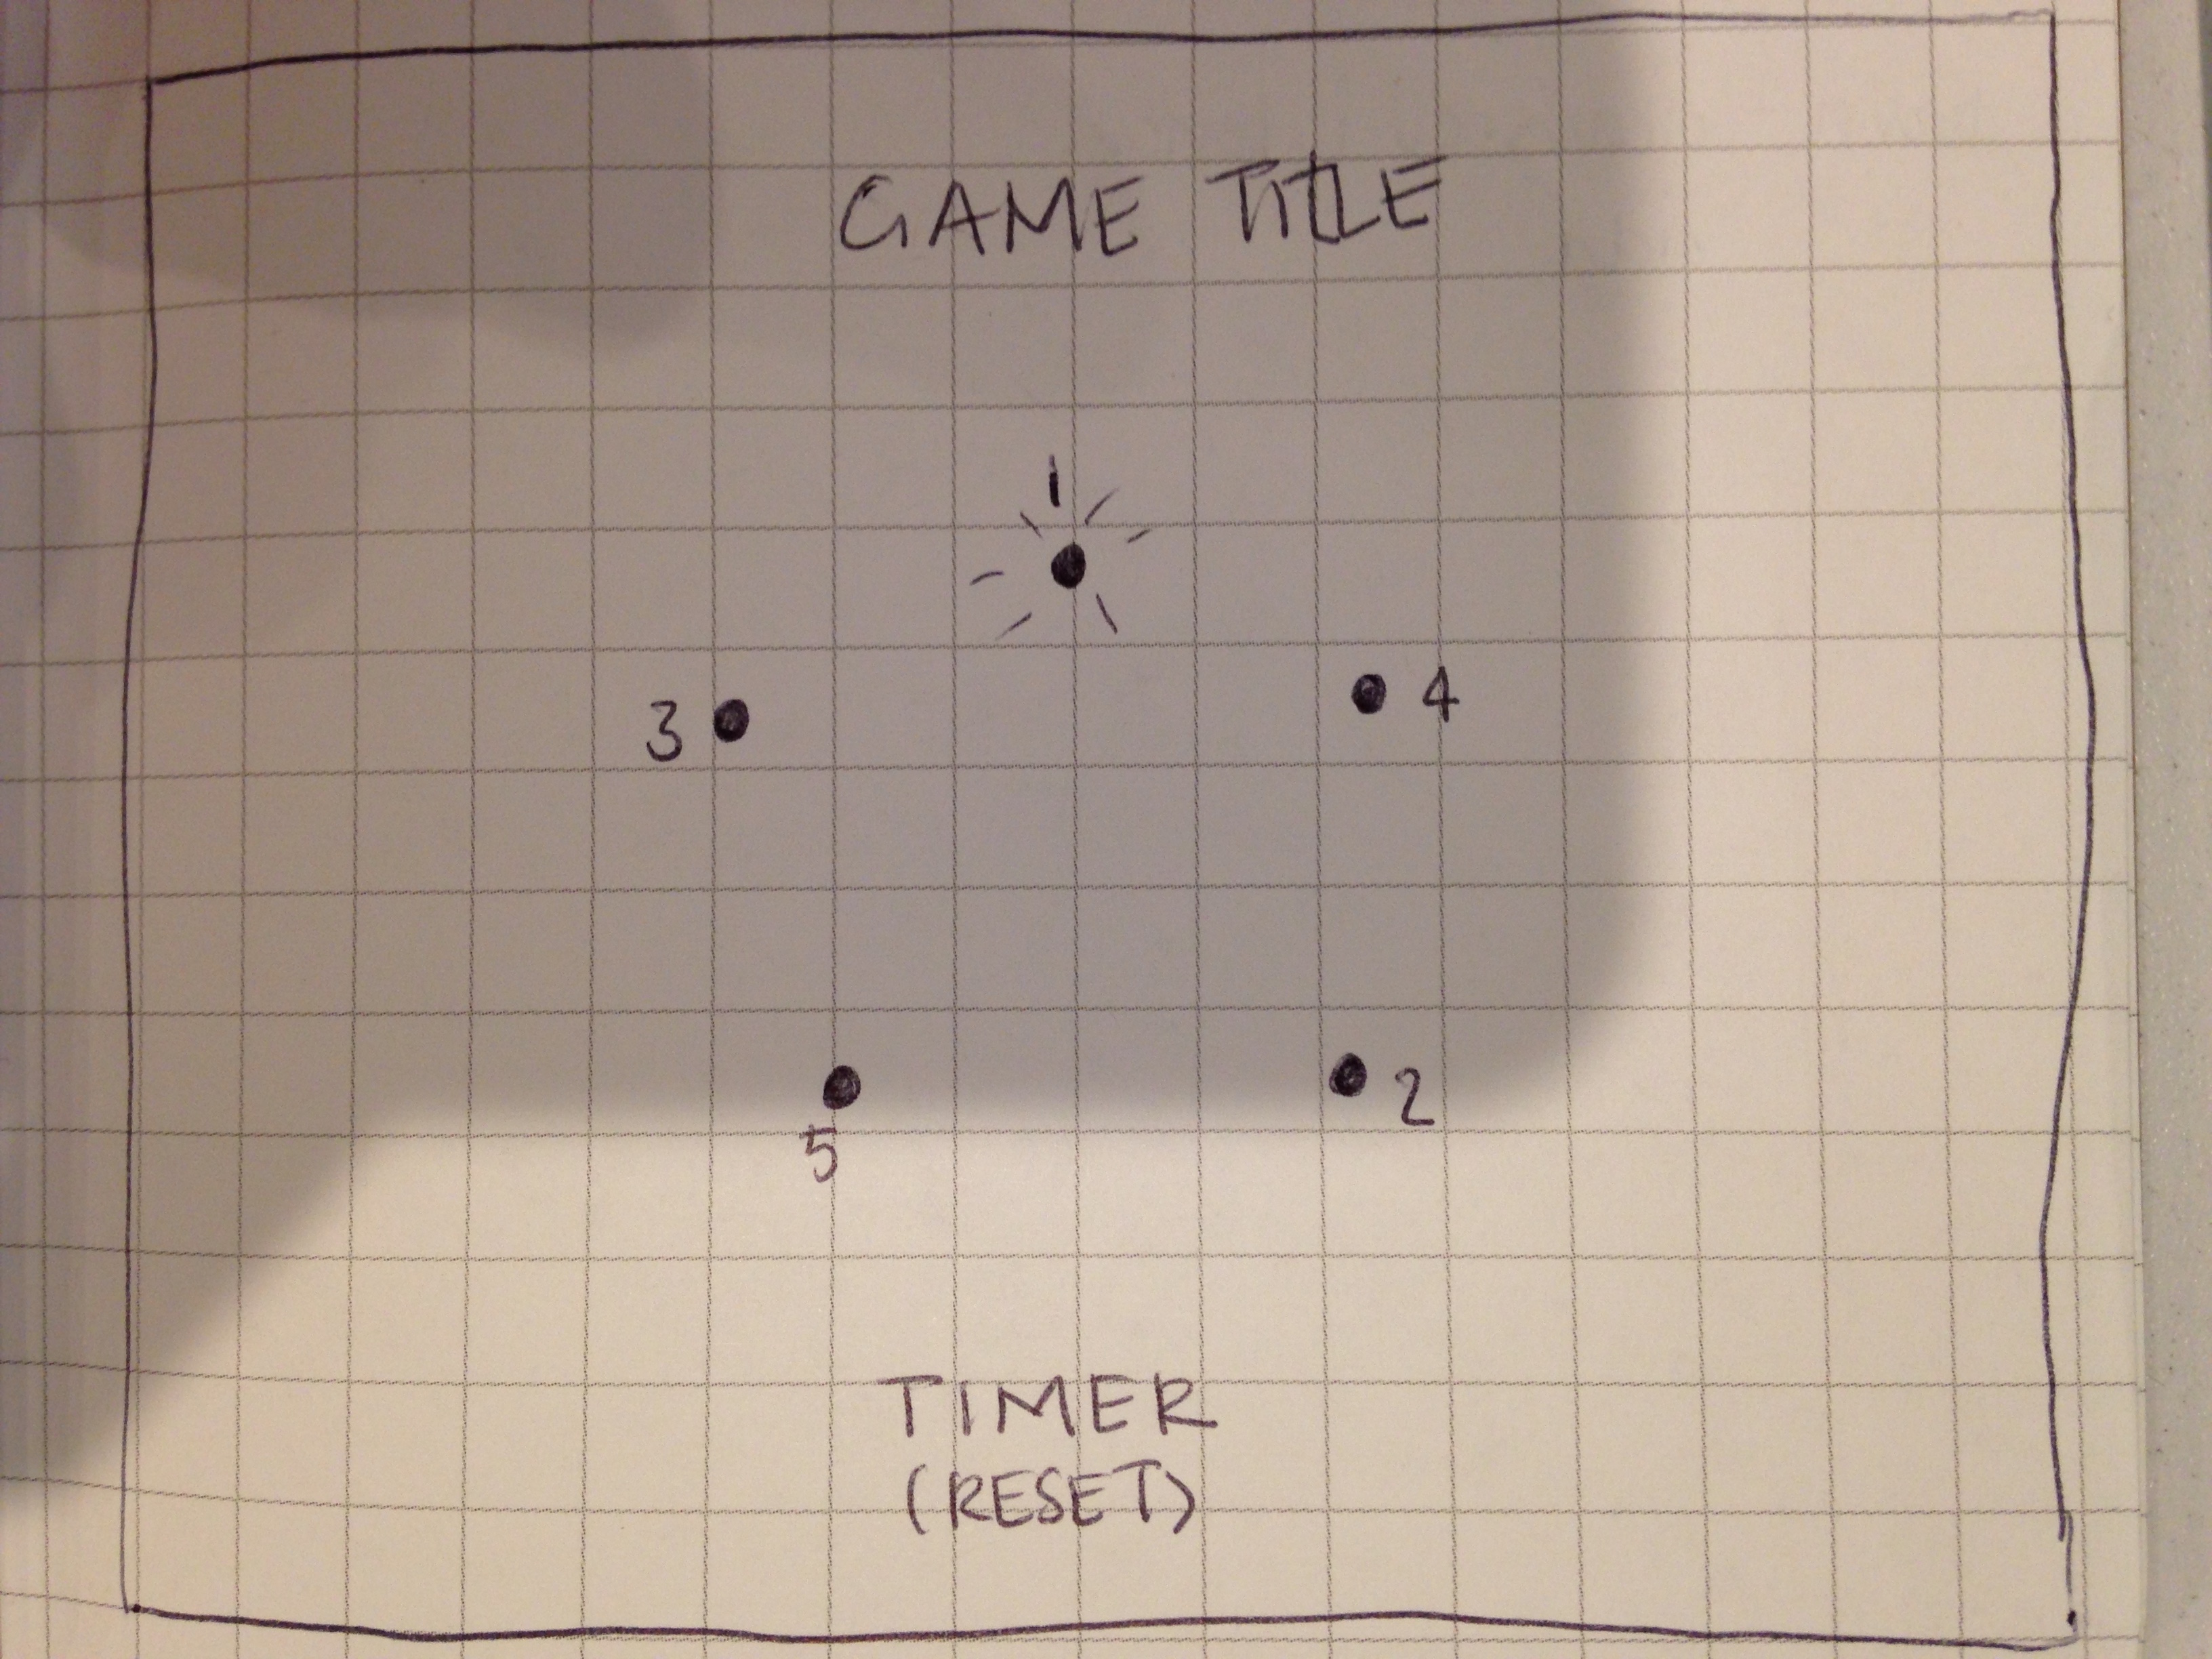 GAME TITLE
1
3
4
5
2
TIMER
(RESET)